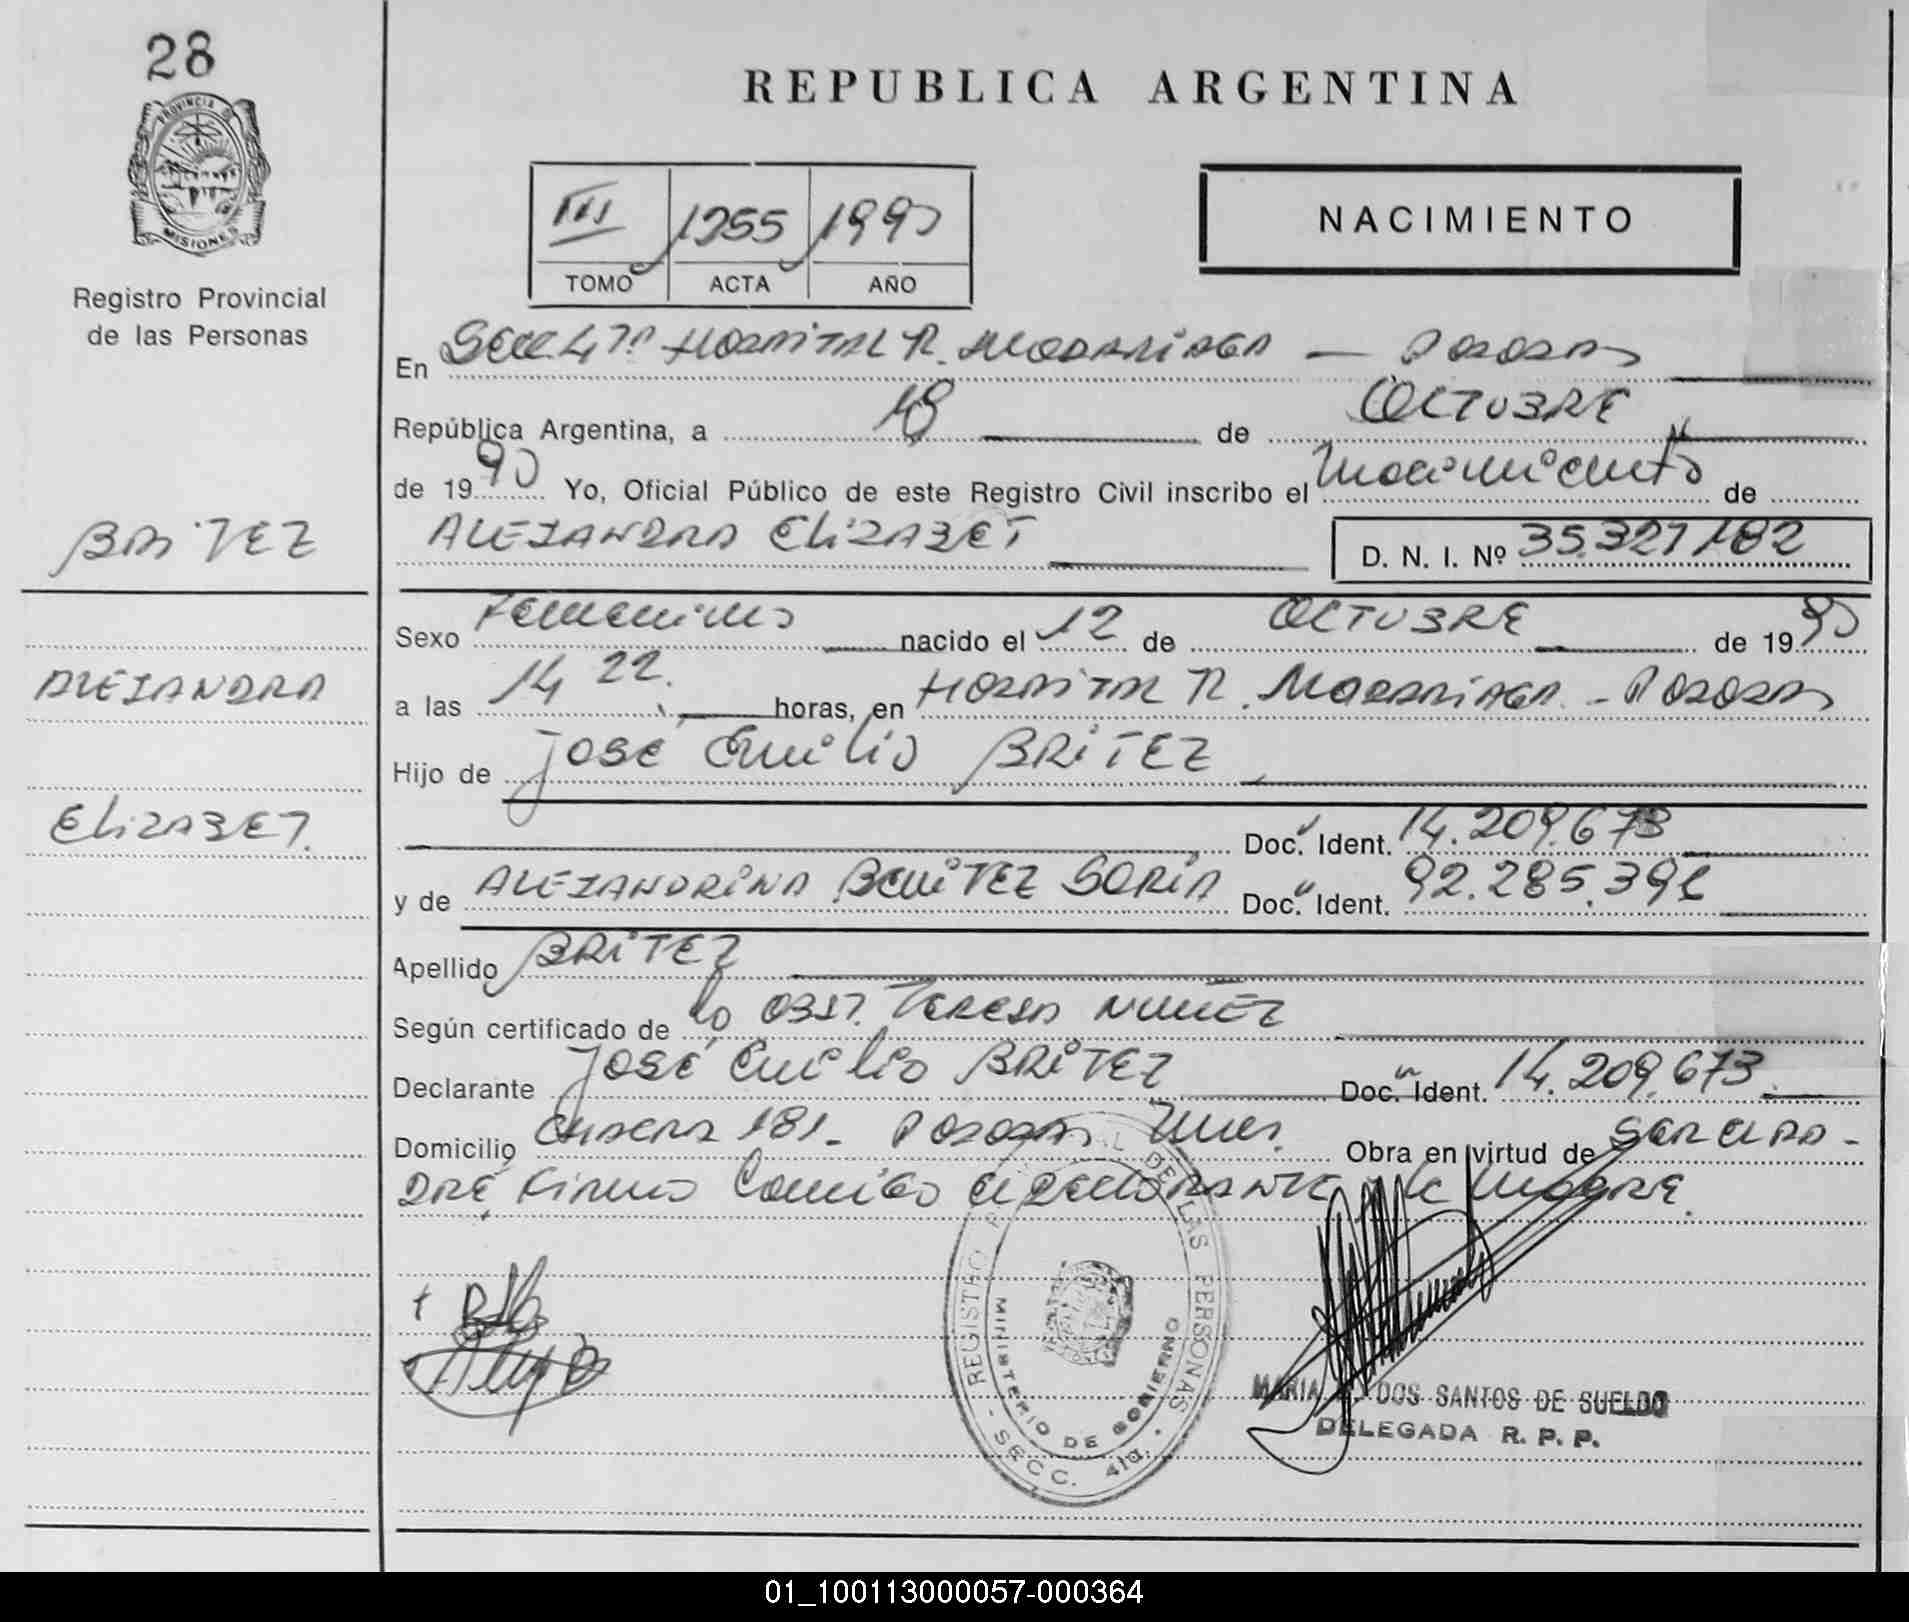 28
PROVINCIA DE
MISIONES
Registro Provincial
de las Personas
REPUBLICA ARGENTINA
III 1255 1990
TOMO ACTA AÑO
NACIMIENTO
En Secc 4ta Hospital R. Madariaga — Posadas
República Argentina, a 18 de OCTUBRE
de 1990 Yo, Oficial Público de este Registro Civil inscribo el Nacimiento de
BRITEZ
ALEJANDRA ELIZABET D. N. I. Nº 35.327.182
Sexo Femenino nacido el 12 de OCTUBRE de 1990
ALEJANDRA
a las 14 22. horas, en Hospital R. Madariaga - Posadas
Hijo de José Emilio BRITEZ
ELIZABET.
Doc. Ident. 14.209.673
y de ALEJANDRINA BENITEZ SORIA Doc. Ident. 92.285.391
Apellido BRITEZ
Según certificado de la OBST. TERESA NUÑEZ
Declarante José Emilio BRITEZ Doc. Ident. 14.209.673
Domicilio 181 - Posadas Mnes. Obra en virtud de SER EL PA-
DRE, Firma Conmigo el DECLARANTE y la MADRE.
REGISTRO PROVINCIAL DE LAS PERSONAS - SECC. 4ta. -
MINISTERIO DE GOBIERNO
MARIA DOS SANTOS DE SUELDO
DELEGADA R. P. P.
01_100113000057-000364